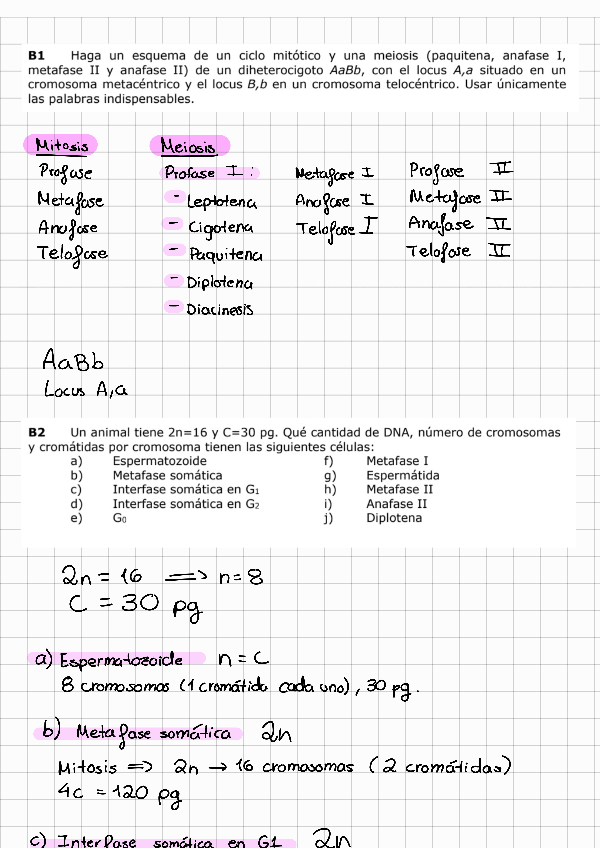 B1 Haga un esquema de un ciclo mitótico y una meiosis (paquitena, anafase I,
metafase II y anafase II) de un diheterocigoto AaBb, con el locus A,a situado en un
cromosoma metacéntrico y el locus B,b en un cromosoma telocéntrico. Usar únicamente
las palabras indispensables.
Mitosis
Profase
Metafase
Anafase
Telofase
Meiosis
Profase I:
- Leptotena
- Cigotena
- Paquitena
- Diplotena
- Diacinesis
Metafase I
Anafase I
Telofase I
Profase II
Metafase II
Anafase II
Telofase II
AaBb
Locus A,a
B2 Un animal tiene 2n=16 y C=30 pg. Qué cantidad de DNA, número de cromosomas
y cromátidas por cromosoma tienen las siguientes células:
a) Espermatozoide
b) Metafase somática
c) Interfase somática en G1
d) Interfase somática en G2
e) G0
f) Metafase I
g) Espermátida
h) Metafase II
i) Anafase II
j) Diplotena
2n = 16 => n = 8
C = 30 pg
a) Espermatozoide n = C
8 cromosomas (1 cromátida cada uno), 30 pg.
b) Metafase somática 2n
Mitosis => 2n → 16 cromosomas (2 cromátidas)
4c = 120 pg
c) Interfase somática en G1 2n